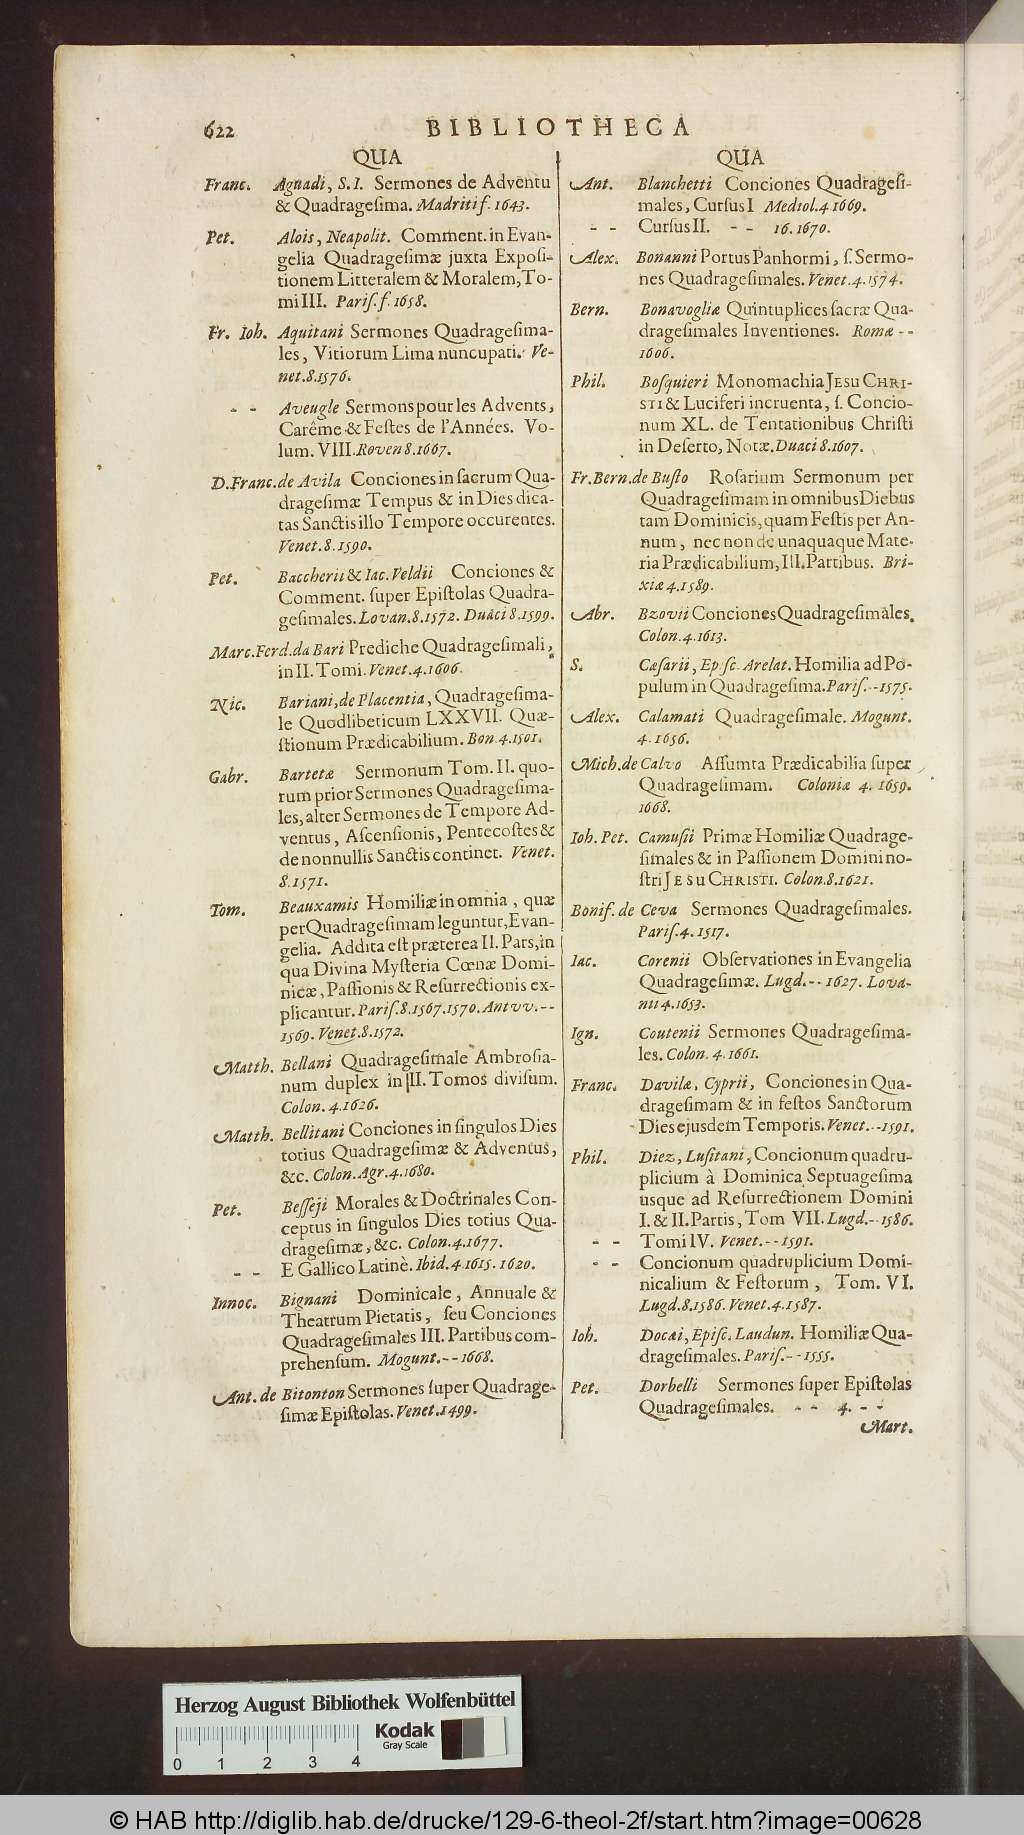 622 BIBLIOTHECA
QUA
Franc. Aguadi, S. I. Sermones de Adventu
& Quadragesima. Madriti f. 1643.
Pet. Alois, Neapolit. Comment. in Evan-
gelia Quadragesimæ juxta Exposi-
tionem Litteralem & Moralem, To-
mi III. Paris. f. 1658.
Fr. Ioh. Aquitani Sermones Quadragesima-
les, Vitiorum Lima nuncupati. Ve-
net. 8. 1576.
- - Aveugle Sermons pour les Advents,
Carême & Festes de l'Années. Vo-
lum. VIII. Roven 8. 1667.
D. Franc. de Avila Conciones in sacrum Qua-
dragesimæ Tempus & in Dies dica-
tas Sanctis illo Tempore occurentes.
Venet. 8. 1590.
Pet. Baccherii & Iac. Veldii Conciones &
Comment. super Epistolas Quadra-
gesimales. Lovan. 8. 1572. Duaci 8. 1599.
Marc. Ferd. da Bari Prediche Quadragesimali,
in II. Tomi. Venet. 4. 1606.
Nic. Bariani, de Placentia, Quadragesima-
le Quodlibeticum LXXVII. Quæ-
stionum Prædicabilium. Bon. 4. 1501.
Gabr. Bartetæ Sermonum Tom. II. quo-
rum prior Sermones Quadragesima-
les, alter Sermones de Tempore Ad-
ventus, Ascensionis, Pentecostes &
de nonnullis Sanctis continet. Venet.
8. 1571.
Tom. Beauxamis Homiliæ in omnia, quæ
per Quadragesimam leguntur, Evan-
gelia. Addita est præterea II. Pars, in
qua Divina Mysteria Cœnæ Domi-
nicæ, Passionis & Resurrectionis ex-
plicantur. Paris. 8. 1567. 1570. Antvv. - -
1569. Venet. 8. 1572.
Matth. Bellani Quadragesimale Ambrosia-
num duplex in II. Tomos divisum.
Colon. 4. 1626.
Matth. Bellitani Conciones in singulos Dies
totius Quadragesimæ & Adventus,
&c. Colon. Agr. 4. 1680.
Pet. Besseji Morales & Doctrinales Con-
ceptus in singulos Dies totius Qua-
dragesimæ, &c. Colon. 4. 1677.
- - E Gallico Latinè. Ibid. 4. 1615. 1620.
Innoc. Bignani Dominicale, Annuale &
Theatrum Pietatis, seu Conciones
Quadragesimales III. Partibus com-
prehensum. Mogunt. - - 1668.
Ant. de Bitonton Sermones super Quadrage-
simæ Epistolas. Venet. 1499.
QUA
Ant. Blanchetti Conciones Quadragesi-
males, Cursus I Mediol. 4 1669.
- - Cursus II. - - 16. 1670.
Alex. Bonanni Portus Panhormi, s. Sermo-
nes Quadragesimales. Venet. 4. 1574.
Bern. Bonavogliæ Quintuplices sacræ Qua-
dragesimales Inventiones. Romæ - -
1606.
Phil. Bosquieri Monomachia JESU CHRI-
STI & Luciferi incruenta, s. Concio-
num XL. de Tentationibus Christi
in Deserto, Notæ. Duaci 8. 1607.
Fr. Bern. de Busto Rosarium Sermonum per
Quadragesimam in omnibus Diebus
tam Dominicis, quam Festis per An-
num, nec non de unaquaque Mate-
ria Prædicabilium, III. Partibus. Bri-
xiæ 4. 1589.
Abr. Bzovii Conciones Quadragesimales.
Colon. 4. 1613.
S. Cæsarii, Episc. Arelat. Homilia ad Po-
pulum in Quadragesima. Paris. - - 1575.
Alex. Calamati Quadragesimale. Mogunt.
4. 1656.
Mich. de Calvo Assumta Prædicabilia super
Quadragesimam. Coloniæ 4. 1659.
1668.
Ioh. Pet. Camusii Primæ Homiliæ Quadrage-
simales & in Passionem Domini no-
stri JESU CHRISTI. Colon. 8. 1621.
Bonif. de Ceva Sermones Quadragesimales.
Paris. 4. 1517.
Iac. Corenii Observationes in Evangelia
Quadragesimæ. Lugd. - - 1627. Lova-
nii 4. 1653.
Ign. Coutenii Sermones Quadragesima-
les. Colon. 4. 1661.
Franc. Davilæ, Cyprii, Conciones in Qua-
dragesimam & in festos Sanctorum
Dies ejusdem Temporis. Venet. - - 1591.
Phil. Diez, Lusitani, Concionum quadru-
plicium à Dominica Septuagesima
usque ad Resurrectionem Domini
I. & II. Partis, Tom VII. Lugd. - - 1586.
- - Tomi IV. Venet. - - 1591.
- - Concionum quadruplicium Domi-
nicalium & Festorum, Tom. VI.
Lugd. 8. 1586. Venet. 4. 1587.
Ioh. Docæi, Episc. Laudun. Homiliæ Qua-
dragesimales. Paris. - - 1555.
Pet. Dorbelli Sermones super Epistolas
Quadragesimales. - - 4. - -
Mart.
Herzog August Bibliothek Wolfenbüttel
Kodak
Gray Scale
0 1 2 3 4
© HAB http://diglib.hab.de/drucke/129-6-theol-2f/start.htm?image=00628